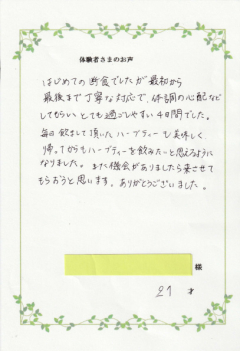 体験者さまのお声
はじめての断食でしたが最初から
最後まで丁寧な対応で、体調の心配など
してもらい とても過ごしやすい4日間でした。
毎日飲ませて頂いたハーブティーも美味しく、
帰ってからもハーブティーを飲みたいと思えるように
なりました。また機会がありましたら来させて
もらおうと思います。ありがとうございました。
様
27 才